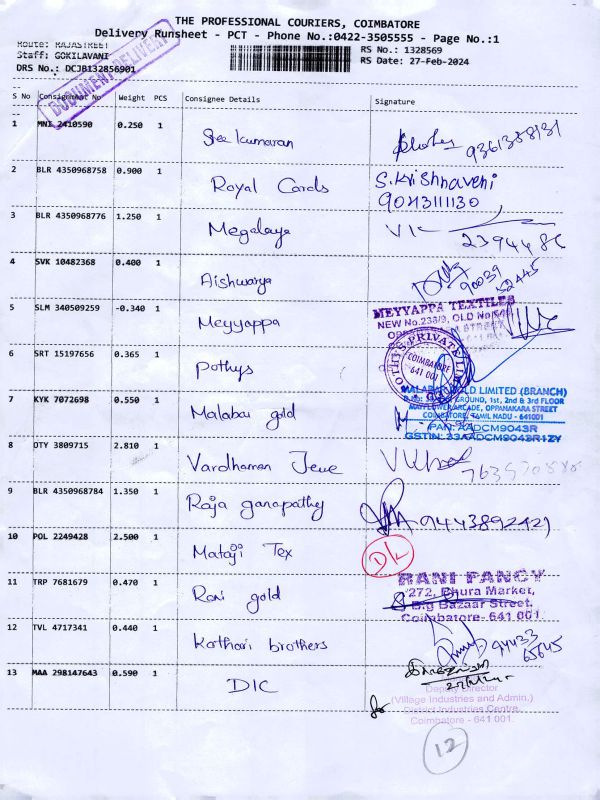 THE PROFESSIONAL COURIERS, COIMBATORE
Delivery Runsheet - PCT - Phone No.:0422-3505555 - Page No.:1
Route: RAJASTREET
Staff: GOKILAVANI
DRS No.: DCJB132856901
RS No.: 1328569
RS Date: 27-Feb-2024
DOCUMENT DELIVERY
S No Consignment No Weight PCS Consignee Details Signature
1 MNI 2410590 0.250 1 Sree kumaran 9361388131
2 BLR 4350968758 0.900 1 Royal Cards S.Krishnaveni
9043111130
3 BLR 4350968776 1.250 1 Megalaya
2394486
4 SVK 10482368 0.400 1 Aishwarya 90039
52445
5 SLM 340509259 -0.340 1 Meyyappa
MEYYAPPA TEXTILES
6 SRT 15197656 0.365 1 Pothys
COIMBATORE
641 001
7 KYK 7072698 0.550 1 Malabar gold
MALABAR GOLD LIMITED (BRANCH)
GROUND, 1st, 2nd & 3rd FLOOR
MAYFLOWER ARCADE, OPPANAKARA STREET
COIMBATORE, TAMIL NADU - 641001
PAN: AADCM9043R
GSTIN: 33AADCM9043R1ZY
8 DTY 3809715 2.810 1 Vardhaman Jewe
9 BLR 4350968784 1.350 1 Raja ganapathy 9443892421
10 POL 2249428 2.500 1 Mataji Tex D/L
11 TRP 7681679 0.470 1 Rani gold
RANI FANCY
272, Bhura Market,
Big Bazaar Street,
Coimbatore- 641 001
12 TVL 4717341 0.440 1 Kothari brothers 94433
65645
13 MAA 298147643 0.590 1 DIC
Deputy Director
(Village Industries and Admin.)
District Industries Centre
Coimbatore - 641 001.
12